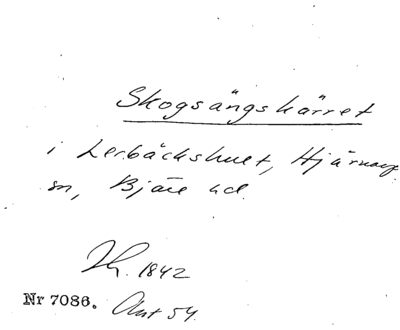 Skogsängskärret
i Lerbäckshult, Hjärnarp
sn, Bjäre hd.
1842
Nr 7086. Avt 54.